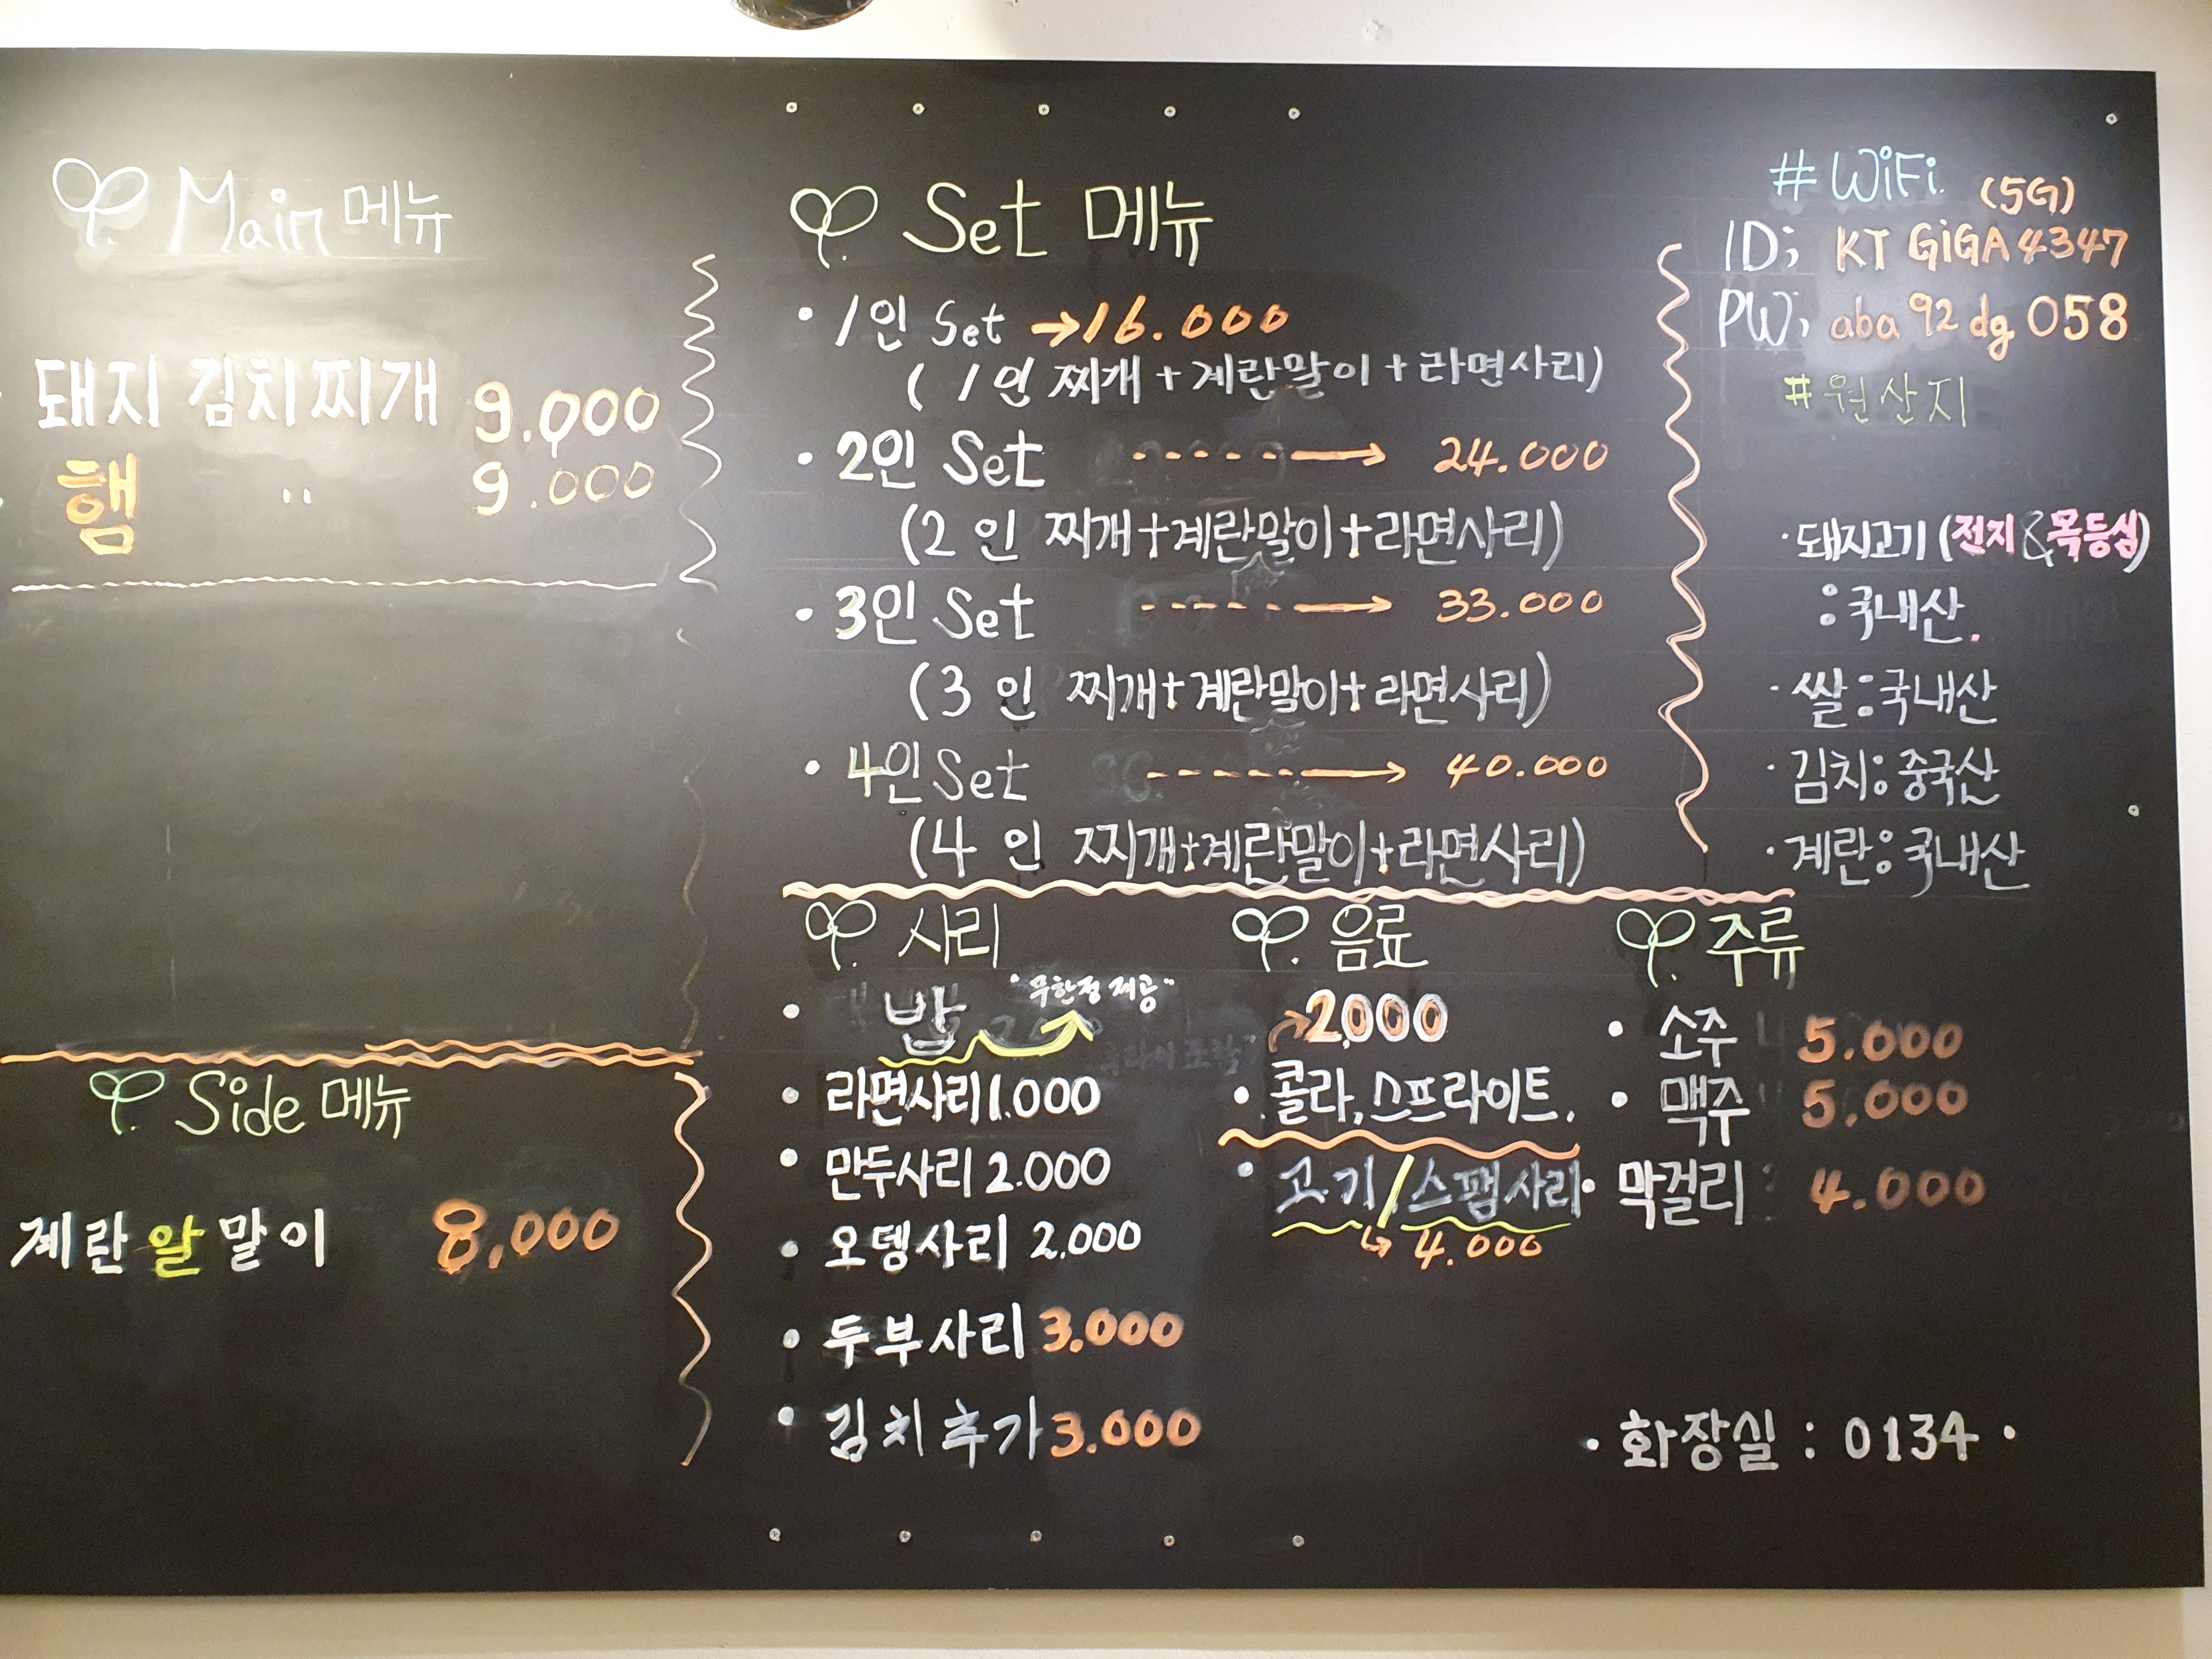 Main 메뉴
돼지 김치찌개 9.000
햄 " 9.000
Side 메뉴
계란알말이 8,000
Set 메뉴
· 1인 Set → 16.000
(1인 찌개+계란말이+라면사리)
· 2인 Set -----→ 24.000
(2인 찌개+계란말이+라면사리)
· 3인 Set -----→ 33.000
(3인 찌개+계란말이+라면사리)
· 4인 Set -----→ 40.000
(4인 찌개+계란말이+라면사리)
# WiFi (5G)
ID; KT GiGA 4347
PW; aba 92 dg 058
# 원산지
· 돼지고기 (전지 & 목등심)
: 국내산.
· 쌀 : 국내산
· 김치 : 중국산
· 계란 : 국내산
사리
· 밥 "무한정 제공"
· 라면사리 1.000
· 만두사리 2.000
· 오뎅사리 2.000
· 두부사리 3.000
· 김치추가 3.000
음료
→ 2,000
· 콜라, 스프라이트.
· 고기/스팸사리
↳ 4.000
주류
· 소주 5.000
· 맥주 5.000
· 막걸리 4.000
· 화장실 : 0134 ·